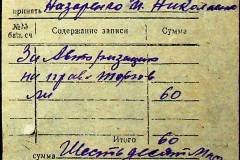 принять Назаренко И. Николаевич
№№ бал. сч Содержание записи Сумма
За Авторизацию
на право торгов
ли 60
Итого 60
сумма Шестьдесят